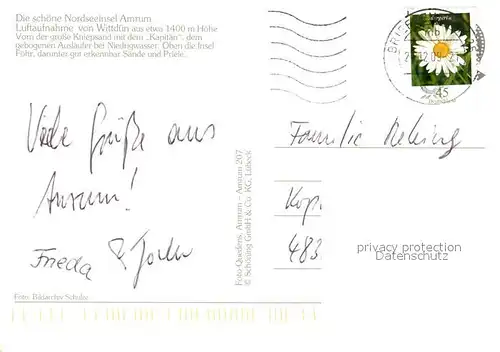 Die schöne Nordseeinsel Amrum
Luftaufnahme von Wittdün aus etwa 1400 m Höhe
Vorn der große Kniepsand mit dem „Kapitän", dem
gebogenen Ausläufer bei Niedrigwasser. Oben die Insel
Föhr, darunter gut erkennbar Sände und Priele.
45
Viele Grüße aus
Amrum!
Frieda &
Foto-Quedens, Amrum – Amrum 207
© Schöning GmbH & Co. KG, Lübeck
Familie
483
privacy protection
Datenschutz
Foto: Bildarchiv Schulze